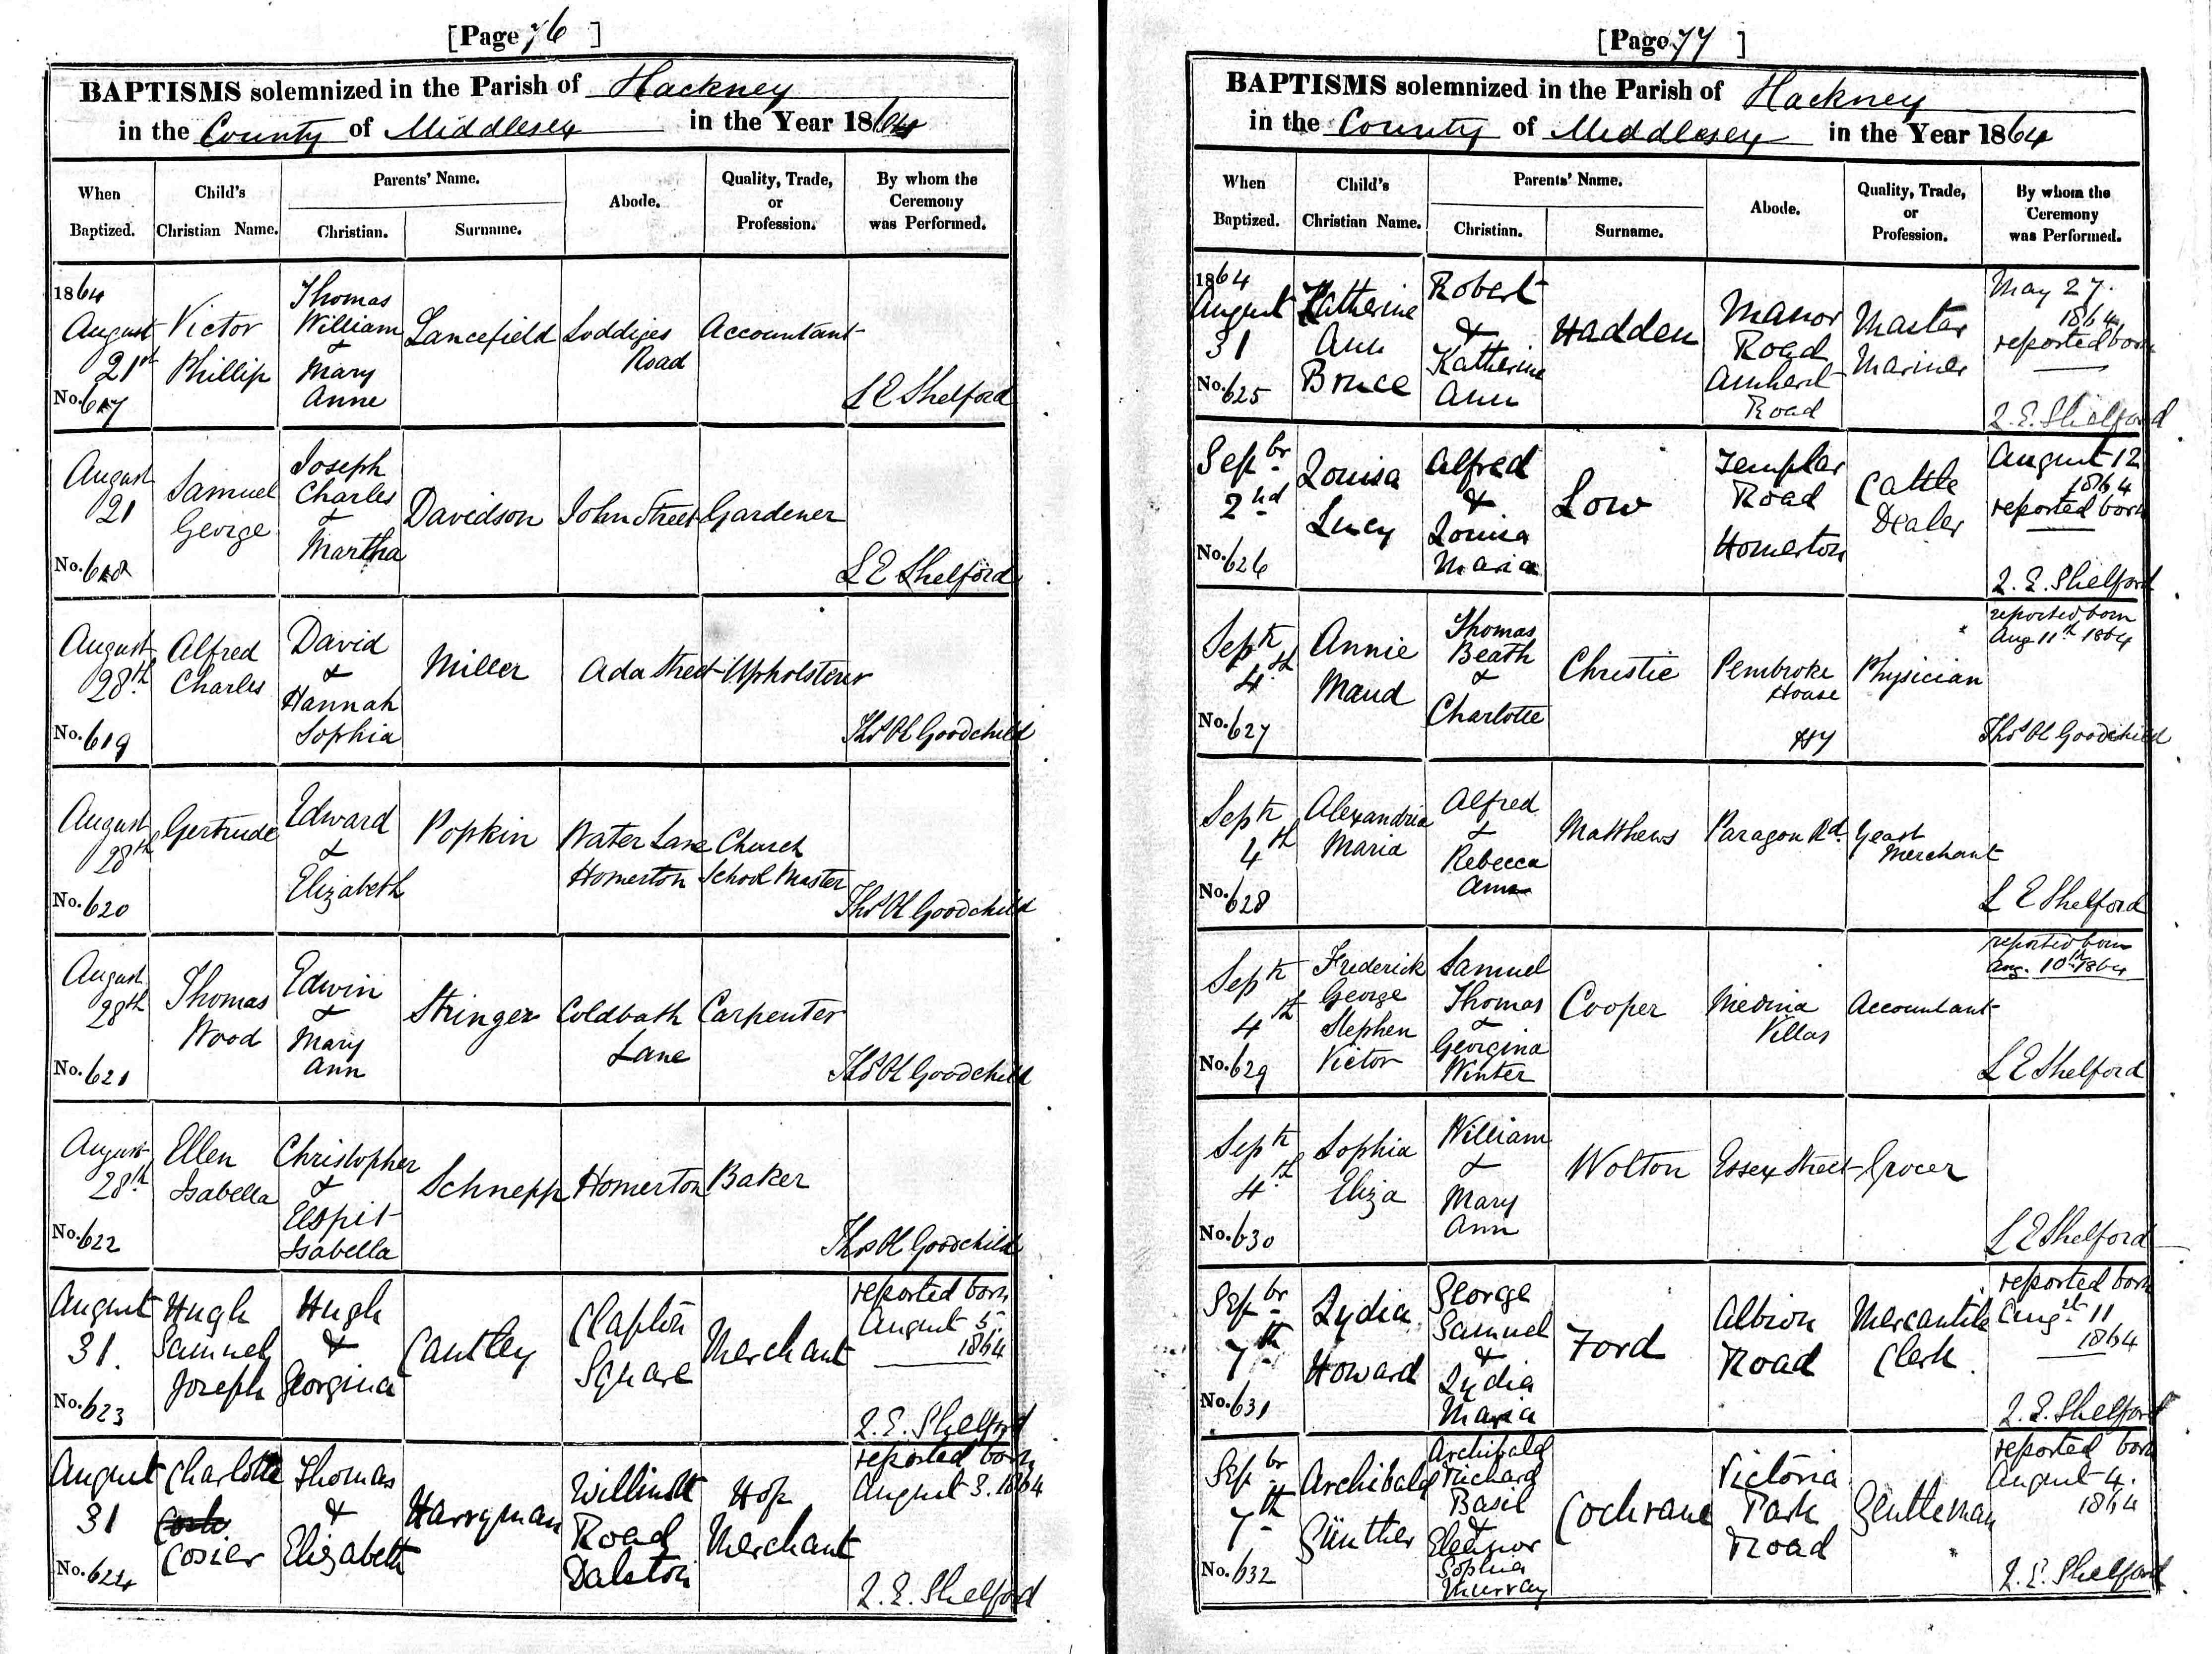 [Page 76 ]
BAPTISMS solemnized in the Parish of Hackney
in the County of Middlesex in the Year 1864
When Baptized.
Child's Christian Name.
Parents' Name.
Christian.
Surname.
Abode.
Quality, Trade, or Profession.
By whom the Ceremony was Performed.
1864
August 21st
No. 617
Victor Phillip
Thomas William & Mary Anne
Lancefield
Loddiges Road
Accountant
L E Shelford
August 21
No. 618
Samuel George
Joseph Charles & Martha
Davidson
John Street
Gardener
L E Shelford
August 28th
No. 619
Alfred Charles
David & Hannah Sophia
Miller
Ada Street
Upholsterer
Thos H Goodchild
August 28th
No. 620
Gertrude
Edward & Elizabeth
Popkin
Water Lane Homerton
Church School Master
Thos H Goodchild
August 28th
No. 621
Thomas Wood
Edwin & Mary Ann
Stringer
Coldbath Lane
Carpenter
Thos H Goodchild
August 28th
No. 622
Ellen Isabella
Christopher & Elspit Isabella
Schnepp
Homerton
Baker
Thos H Goodchild
August 31.
No. 623
Hugh Samuel Joseph
Hugh & Georgina
Cantley
Clapton Square
Merchant
reported born August 5. 1864
L. E. Shelford
August 31
No. 624
Charlotte Cosier
Thomas & Elizabeth
Harryman
Road Dalston
Hop Merchant
reported born August 3. 1864
L. E. Shelford
[Page 77 ]
BAPTISMS solemnized in the Parish of Hackney
in the County of Middlesex in the Year 1864
When Baptized.
Child's Christian Name.
Parents' Name.
Christian.
Surname.
Abode.
Quality, Trade, or Profession.
By whom the Ceremony was Performed.
1864
August 31
No. 625
Katherine Ann Bruce
Robert & Katherine Ann
Hadden
Manor Road Amherst Road
Master Mariner
May 27. 1864 reported born
L. E. Shelford
Sepbr 2nd
No. 626
Louisa Lucy
Alfred & Louisa Maria
Low
Templar Road Homerton
Cattle Dealer
August 12 1864 reported born
L. E. Shelford
Septr 4th
No. 627
Annie Maud
Thomas Beath & Charlotte
Christie
Pembroke House Hy
Physician
reported born Aug 11th 1864
Thos H Goodchild
Septr 4th
No. 628
Alexandria Maria
Alfred & Rebecca Ann
Matthews
Paragon Rd.
Yeast Merchant
L E Shelford
Septr 4th
No. 629
Frederick George Stephen Victor
Samuel Thomas & Georgina Winter
Cooper
Medina Villas
Accountant
reported born Aug. 10th 1864
L E Shelford
Septr 4th
No. 630
Sophia Eliza
William & Mary Ann
Wolton
Essex Street
Grocer
L E Shelford
Sepbr 7th
No. 631
Lydia Howard
George Samuel & Lydia Maria
Ford
Albion Road
Mercantile Clerk.
reported born Augst 11 1864
L. E. Shelford
Sepbr 7th
No. 632
Archibald Günther
Archibald Richard Basil & Eleanor Sophia Murray
Cochrane
Victoria Park Road
Gentleman
reported born August 4. 1864
L. E. Shelford